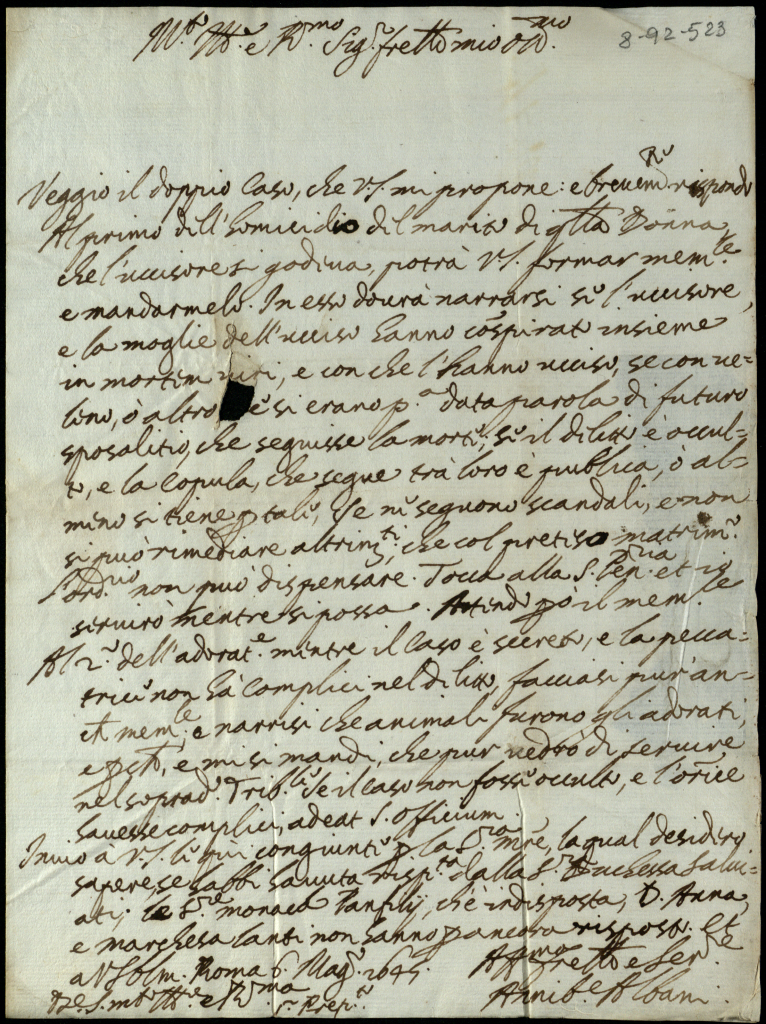 8-92-523
M.to Ill.e e R.mo Sig.r fretto mio oss.mo
Veggio il doppio Caso, che V.S. mi propone: e brevem.te rispondo
Al primo dell'homicidio del marito di qlla Donna,
che l'uccisore si godeva, potrà V.S. formar mem.le
e mandarmelo. In esso dovrà narrarsi se l'uccisore,
e la moglie dell'ucciso hanno cospirato insieme
in mortem viri, e con che l'hanno ucciso, se con ve=
leno, ò altro e si erano p.a data parola di futuro
sposalitio, che seguisse la morte; se il delitto è occul=
to, e la Copula, che segue trà loro è publica, ò al=
meno si tiene p tale, se ne seguono scandali, e non
si può rimediare altrim.ti, che col preteso matrim.o
l'ord.rio non può dispensare. Tocca alla S. Pen.ria et io
servirò mentre si possa. Attendo pò il mem.le
Al 2.o dell'adorat.e mentre il Caso è secreto, e la pecca=
trice non hà Complici nel delitto, facciasi pur an=
co mem.le, e narrisi che animali furono gli adorati,
e psto, e mi si mandi, che pur vedrò di servire
nel soprad.o Trib.le Se il caso non fosse occulto, e l'orice
havesse complici, adeat S. Officium.
Invio à V.S. li qui congiunti p la S.ra mre, la qual desidero
sapere, se habbi havuta risp.ta dalla S.ra Duchessa Salvi=
ati; la S.ra monaca Panfilij, ch'è indisposta, D. Anna,
e marchesa lanti non hanno p ancora risposto. Et
a V.S. b.m. Roma 6. Mag.o 1645.
Aff.mo fretto e Ser.re
Annib.e Albani